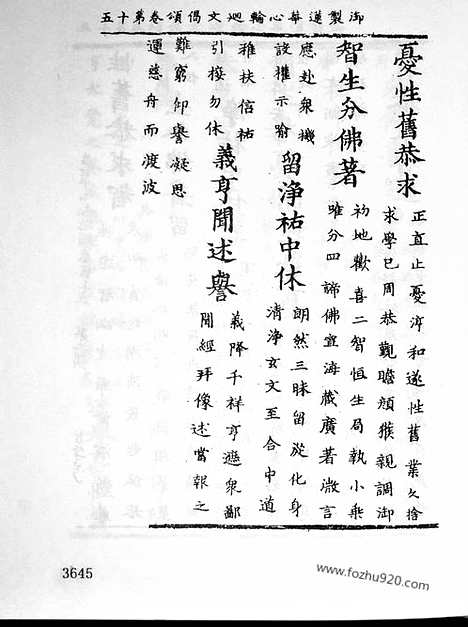 御製蓮華心輪迴文偈頌卷第十五
憂性舊恭求
正直止憂淳和遂性舊業久捨
求學已周恭觀瞻頻獲親調御
智生分佛著
初地歡喜二智恒生局執小乘
唯分四諦佛宣海藏廣著微言
應赴衆機
設權示喻
留淨祐中休
朗然三昧留從化身
清淨玄文至合中道
雅扶信祐
引接勿休
義亨聞述譽
義降千祥亨遊衆鄙
聞經拜像述當報之
難窮仰譽凝思
運慈舟而渡波
3645
www.fozhu920.com